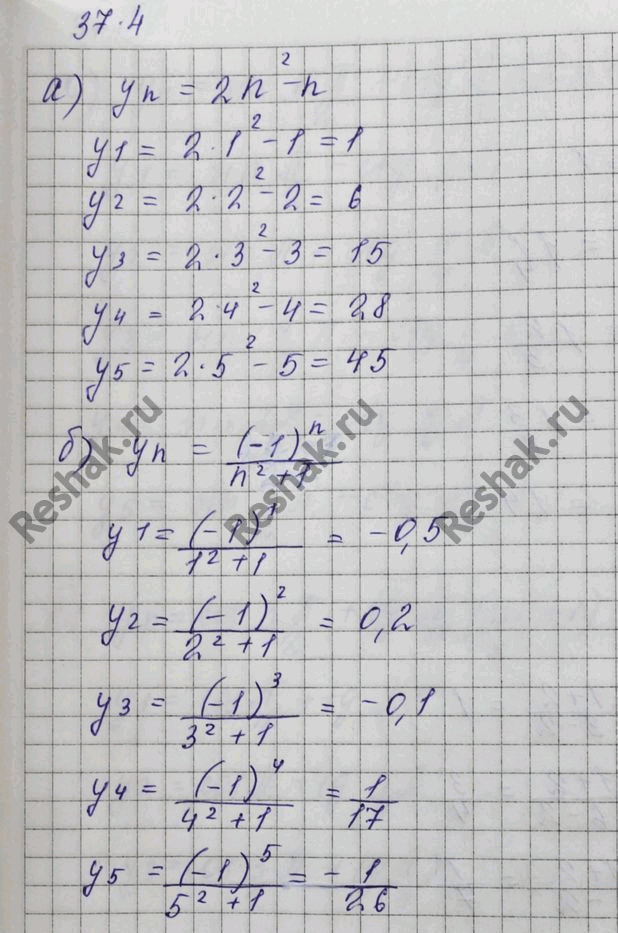 37.4
а) yn = 2n² - n
y1 = 2·1² - 1 = 1
y2 = 2·2² - 2 = 6
y3 = 2·3² - 3 = 15
y4 = 2·4² - 4 = 28
y5 = 2·5² - 5 = 45
б) yn = (-1)ⁿ / n² + 1
y1 = (-1)¹ / 1² + 1 = -0,5
y2 = (-1)² / 2² + 1 = 0,2
y3 = (-1)³ / 3² + 1 = -0,1
y4 = (-1)⁴ / 4² + 1 = 1/17
y5 = (-1)⁵ / 5² + 1 = - 1/26
Reshak.ru
Reshak.ru
Reshak.ru